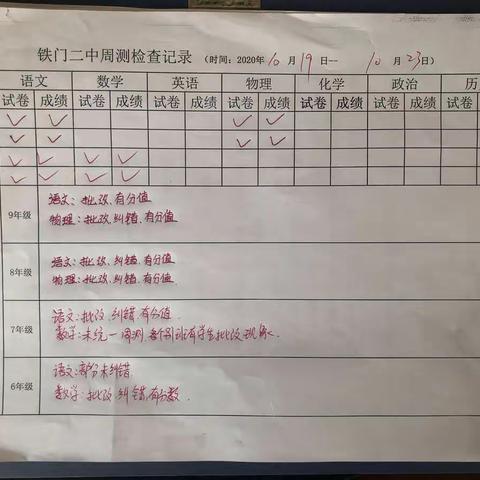 铁门二中周测检查记录 (时间: 2020年10月19日-- 10月23日)
语文 数学 英语 物理 化学 政治 历
试卷 成绩 试卷 成绩 试卷 成绩 试卷 成绩 试卷 成绩 试卷 成绩 试卷
✓ ✓ ✓ ✓
✓ ✓ ✓ ✓
✓ ✓ ✓ ✓
✓ ✓ ✓ ✓
9年级
语文: 批改、有分值
物理: 批改、纠错、有分值
8年级
语文: 批改、纠错、有分值
物理: 批改、纠错、有分值
7年级
语文: 批改、纠错、有分值.
数学: 未统一周测, 个别班有学生批改现象.
6年级
语文: 部分未纠错
数学: 批改、纠错、有分数.